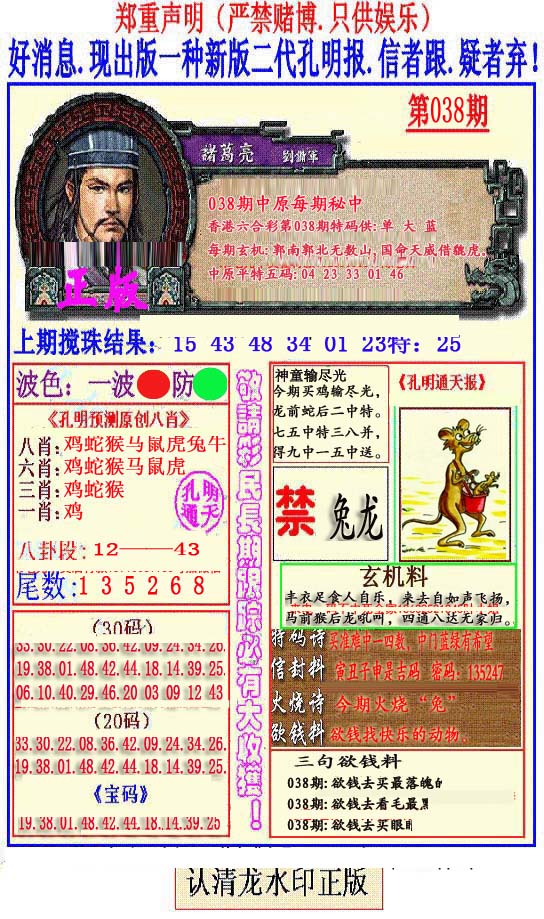 郑重声明（严禁赌博.只供娱乐）
好消息.现出版一种新版二代孔明报.信者跟.疑者弃!
第038期
諸葛亮 劉備軍
038期中原每期秘中
香港六合彩第038期特码供:单 大 蓝
每期玄机:郭南郭北无数山,国命天威借魏虎.
中原平特五码:04 23 33 01 46
正版
上期搅珠结果: 15 43 48 34 01 23特: 25
波色: 一波 防
《孔明预测原创八肖》
八肖:鸡蛇猴马鼠虎兔牛
六肖:鸡蛇猴马鼠虎
三肖:鸡蛇猴
一肖:鸡
孔明
通天
八卦段:12——43
尾数:135268
(30码)
33.30.22.08.36.42.09.24.34.26.
19.38.01.48.42.44.18.14.39.25.
06.10.40.29.46.20 03 09 12 43
(20码)
33.30.22.08.36.42.09.24.34.26.
19.38.01.48.42.44.18.14.39.25.
《宝码》
19.38.01.48.42.44.18.14.39.25
敬請彩民長期跟踪必有大收獲！
神童输尽光
今期买鸡输尽光，
龙前蛇后二中特。
七五中特三八并，
得九中一五中送。
《孔明通天报》
禁 兔龙
玄机料
丰衣足食人自乐，来去自如声飞扬，
马前猴后龙吼叫，四通八达无家归。
特码诗 买准难中一四数，中门蓝绿有希望
信封料 寅丑子申是吉码 密码：135247
火烧诗 今期火烧“兔”
欲钱料 欲钱找快乐的动物.
三句欲钱料
038期:欲钱去买最落魄
038期:欲钱去看毛最
038期:欲钱去买眼
认清龙水印正版